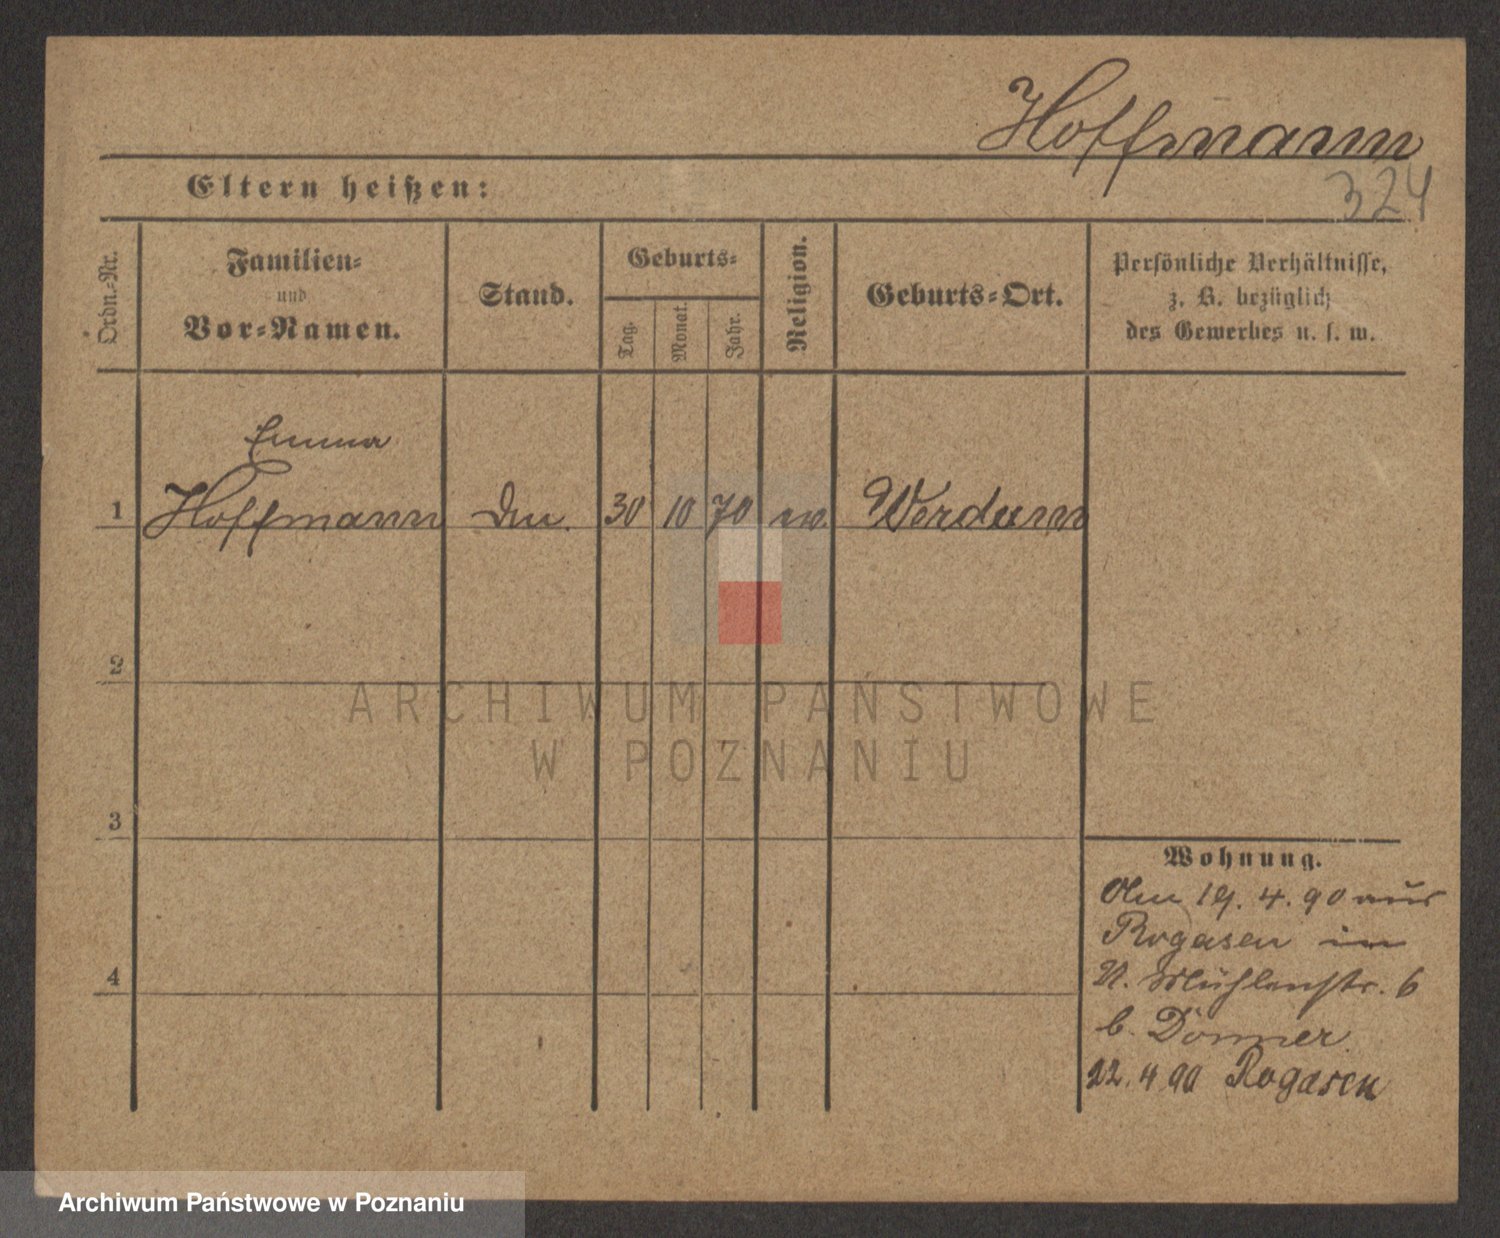 Hoffmann
324
Eltern heißen:
Ordn.-Nr.
Familien-
und
Vor-Namen.
Stand.
Geburts-
Tag.
Monat.
Jahr.
Religion.
Geburts-Ort.
Persönliche Verhältnisse,
z. B. bezüglich
des Gewerbes u. s. w.
Emma
1 Hoffmann 30 10 70 Werdum
2
3
4
ARCHIWUM PAŃSTWOWE
W POZNANIU
Wohnung.
19. 4. 90 aus
Rogasen in
N. Mühlenstr. 6
b. Donner
22. 4. 90 Rogasen
Archiwum Państwowe w Poznaniu